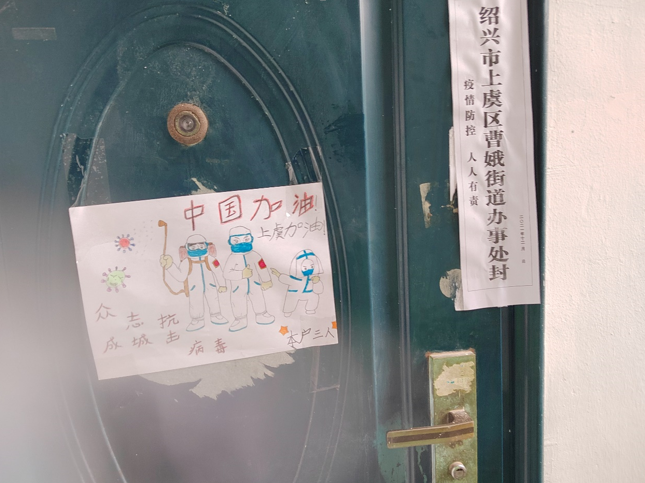 中国加油!
上虞加油!
众志抗
成城击
病毒
本户三人
绍兴市上虞区曹娥街道办事处封
疫情防控 人人有责